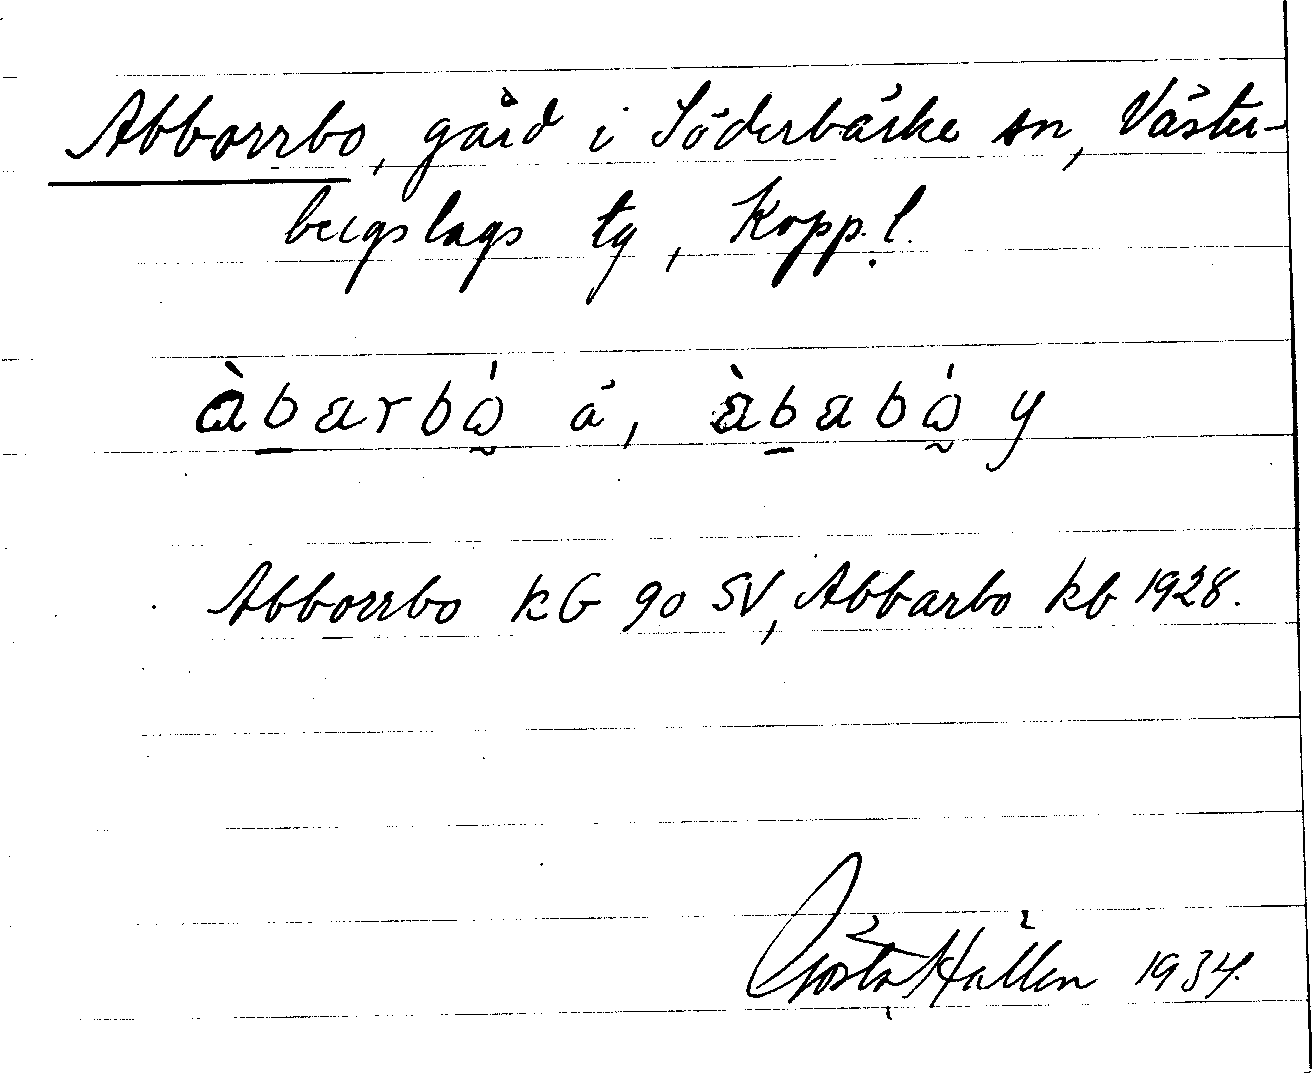 Abborrbo, gård i Söderbärke sn, Väster-
bergslags tg, Kopp. l.
àbarbǫ́ ä, àbabǫ́ y
Abborrbo kG 90 SV, Abbarbo kb 1928.
Gösta Hållén 1934.